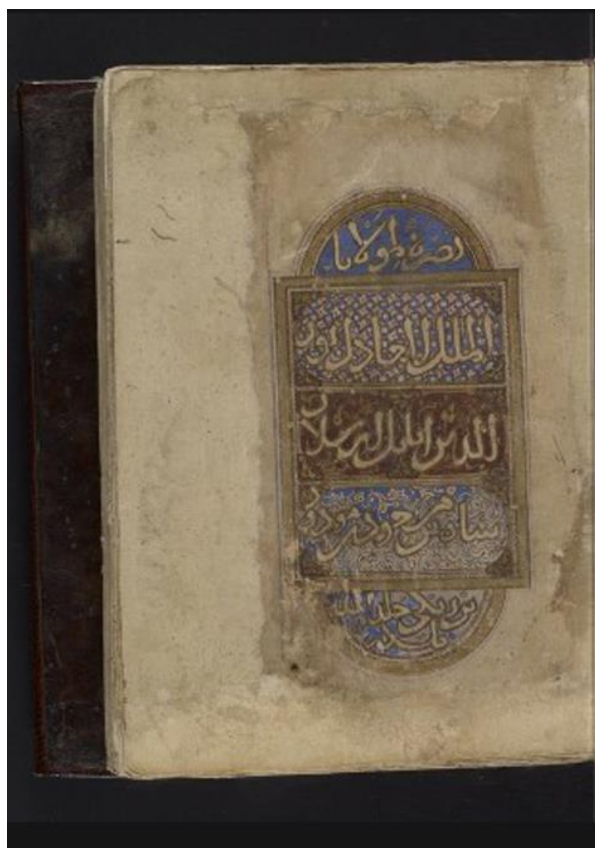 نصرة لمولانا
الملك العادل نور
الدين اتابك ارسلان
شاه بن مسعود بن مودود
بن زنكي خلد الله
ملكه